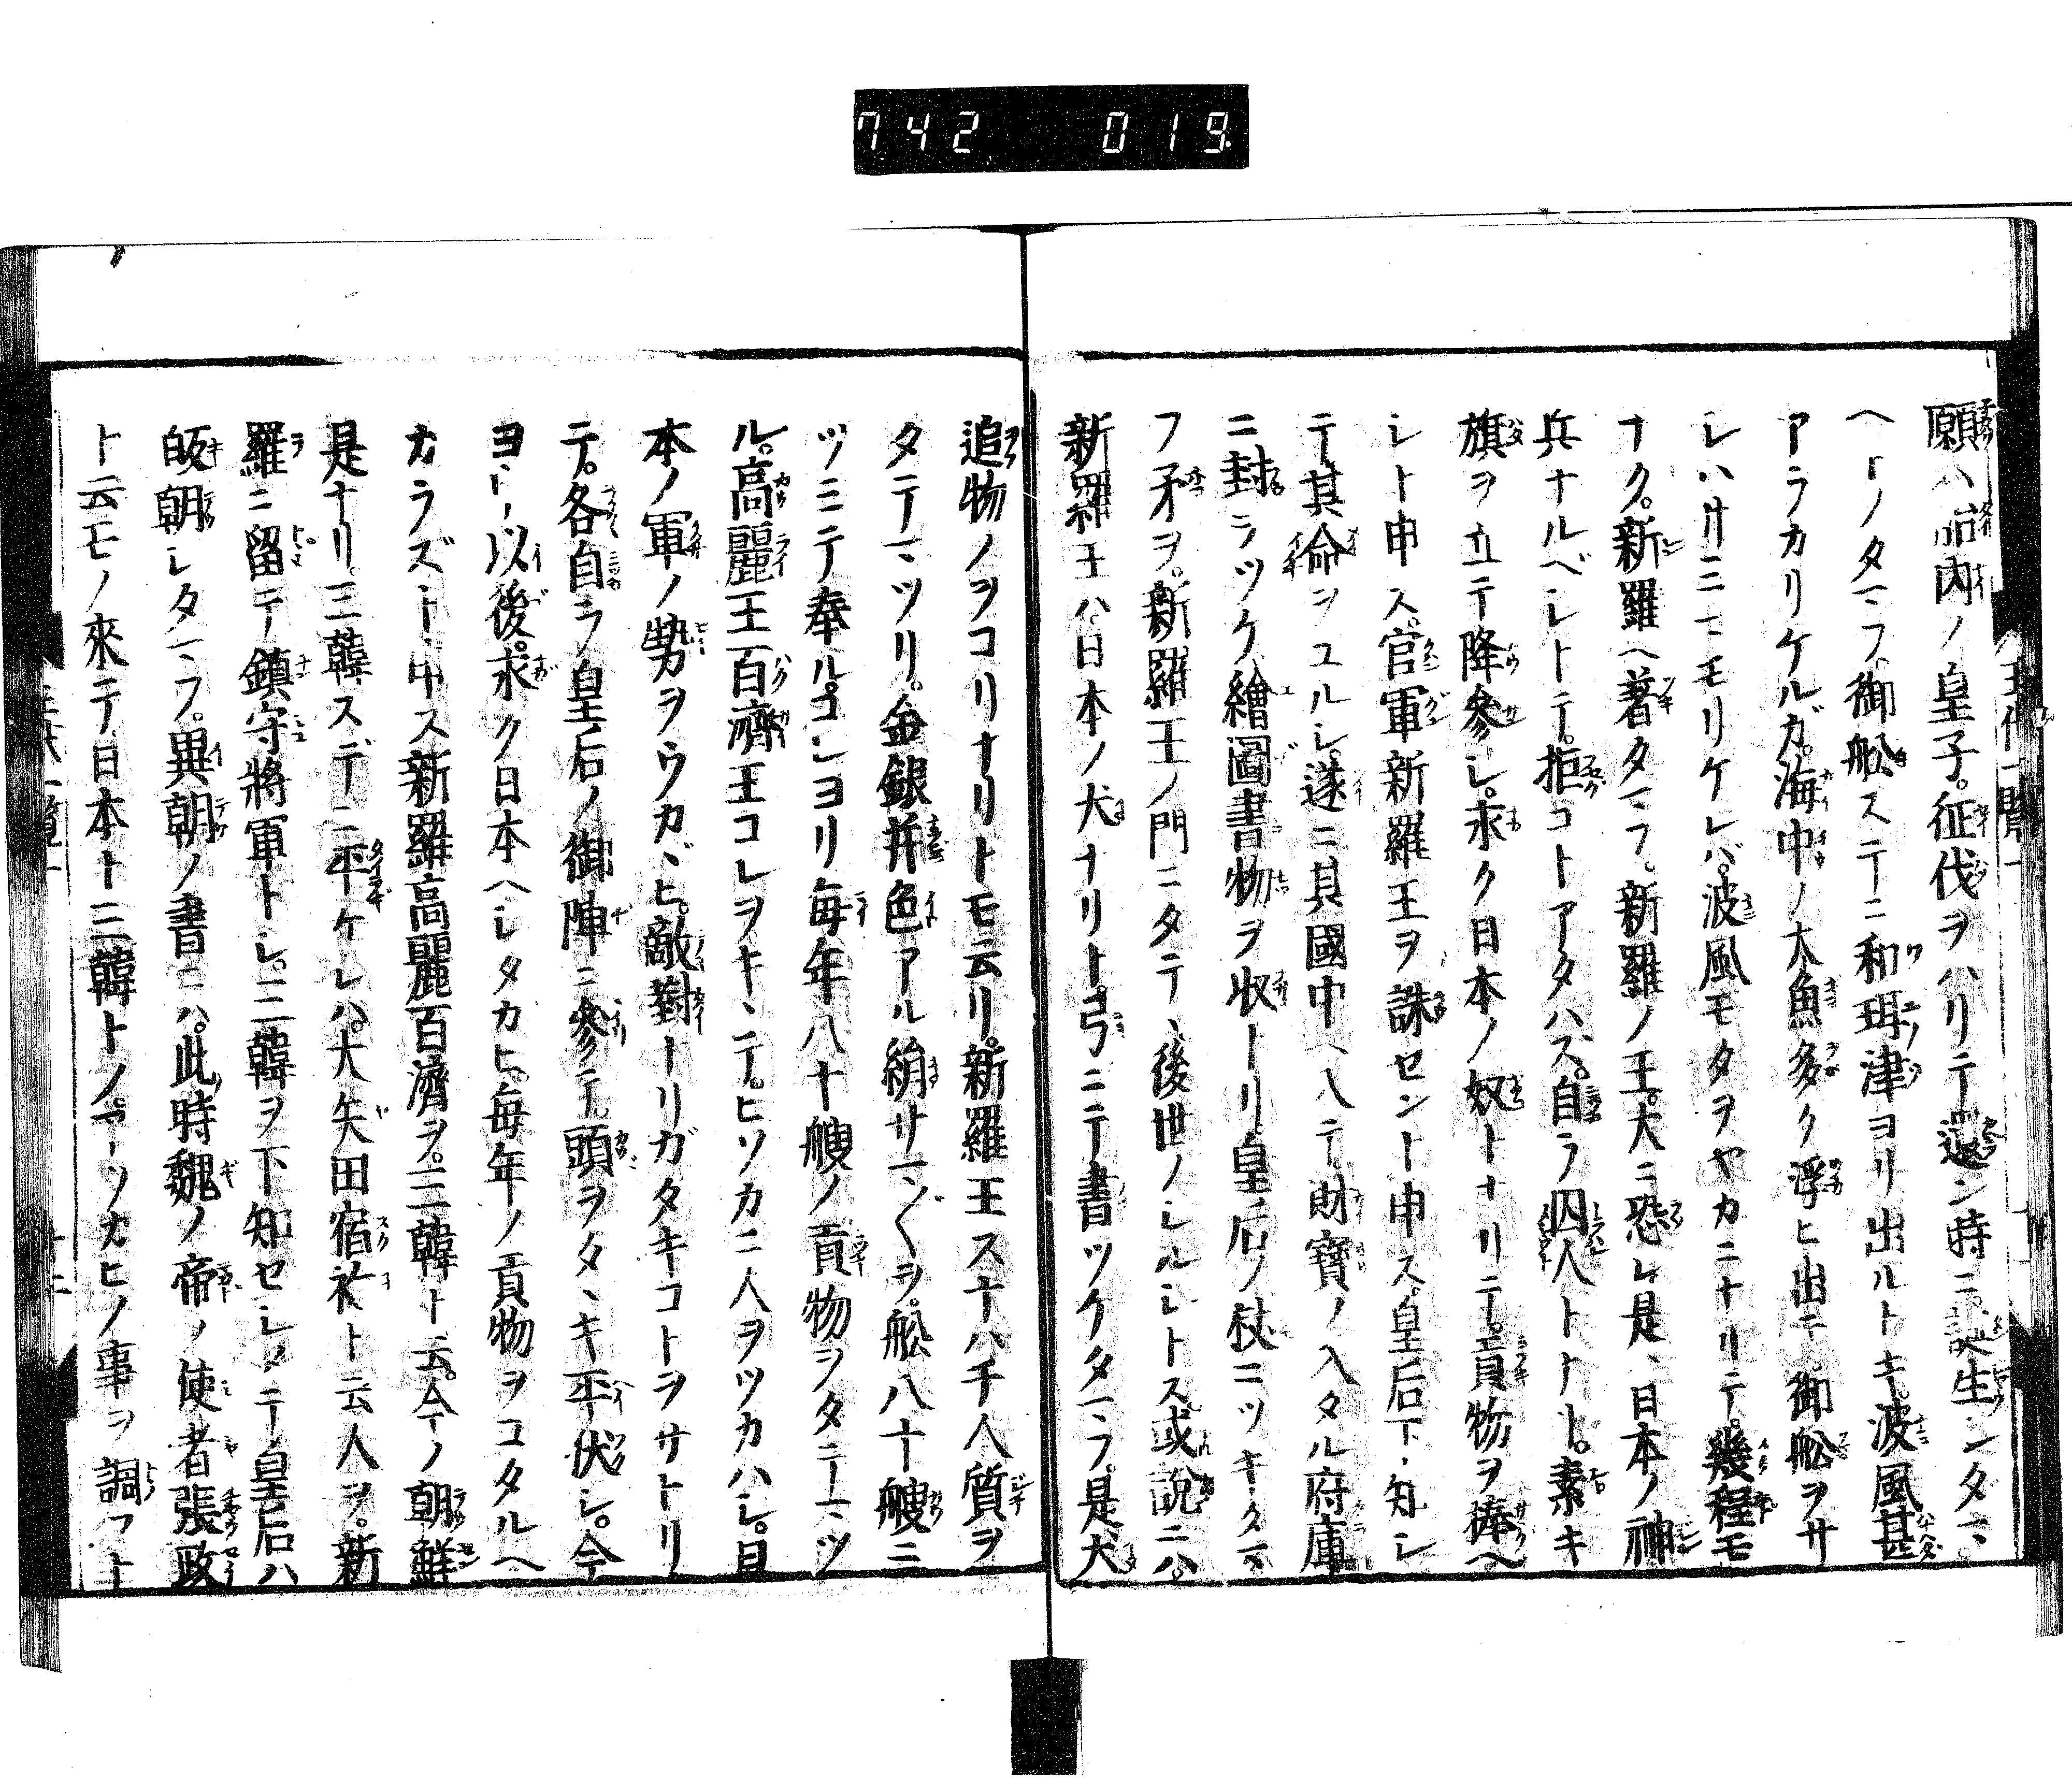 742 019
願ハ胎内ノ皇子。征伐ヲハリテ還ン時ニ。誕生シタマ
ヘトノタマフ。御舩ステニ和珥津ヨリ出ルトキ。波風甚
アラカリケルガ。海中ノ大魚多ク浮ヒ出テ。御舩ヲサ
シハサミマモリケレバ。波風モタヲヤカニナリテ。幾程モ
ナク。新羅ヘ著タマフ。新羅ノ王。大ニ恐レ是、日本ノ神
兵ナルベシトテ。拒コトアタハス。自ラ囚人トナリ。素キ
旗ヲ立テ降參シ。永ク日本ノ奴トナリテ。貢物ヲ捧ヘ
シト申ス。官軍新羅王ヲ誅セント申ス。皇后下知シ
テ其命ヲユルシ。遂ニ其國中ヘ入テ。財寶ノ入タル府庫
ニ封ヲツケ繪圖書物ヲ収トリ皇后ノ杖ニツキタマ
フ矛ヲ。新羅王ノ門ニタテヽ後世ノシルシトス。或說ニハ。
新羅王ハ。日本ノ犬ナリト。弓ニテ書ツケタマフ。是犬
追物ノヲコリナリトモ云リ。新羅王スナハチ人質ヲ
タテマツリ。金銀并色アル絹サマ〴〵ヲ。舩八十艘ニ
ツミテ奉ル。コレヨリ毎年八十艘ノ貢物ヲタテマツ
ル。高麗王百濟王コレヲキヽテ。ヒソカニ人ヲツカハシ。日
本ノ軍ノ勢ヲウカヾヒ。敵對ナリガタキコトヲサトリ
テ。各自ラ皇后ノ御陣ニ參テ。頭ヲタヽキ平伏シ。今
ヨリ以後。永ク日本ヘシタカヒ。毎年ノ貢物ヲコタルヘ
カラズト申ス新羅高麗百濟ヲ。三韓ト云。今ノ朝鮮
是ナリ三韓スデニ平ケレハ。大矢田宿祢ト云人ヲ。新
羅ニ留テ鎮守將軍トシ。三韓ヲ下知セシメテ皇后ハ
皈朝シタマフ。異朝ノ書ニハ。此時魏ノ帝ノ使者張政
ト云モノ來テ日本ト三韓トノ。アツカヒノ事ヲ調フト